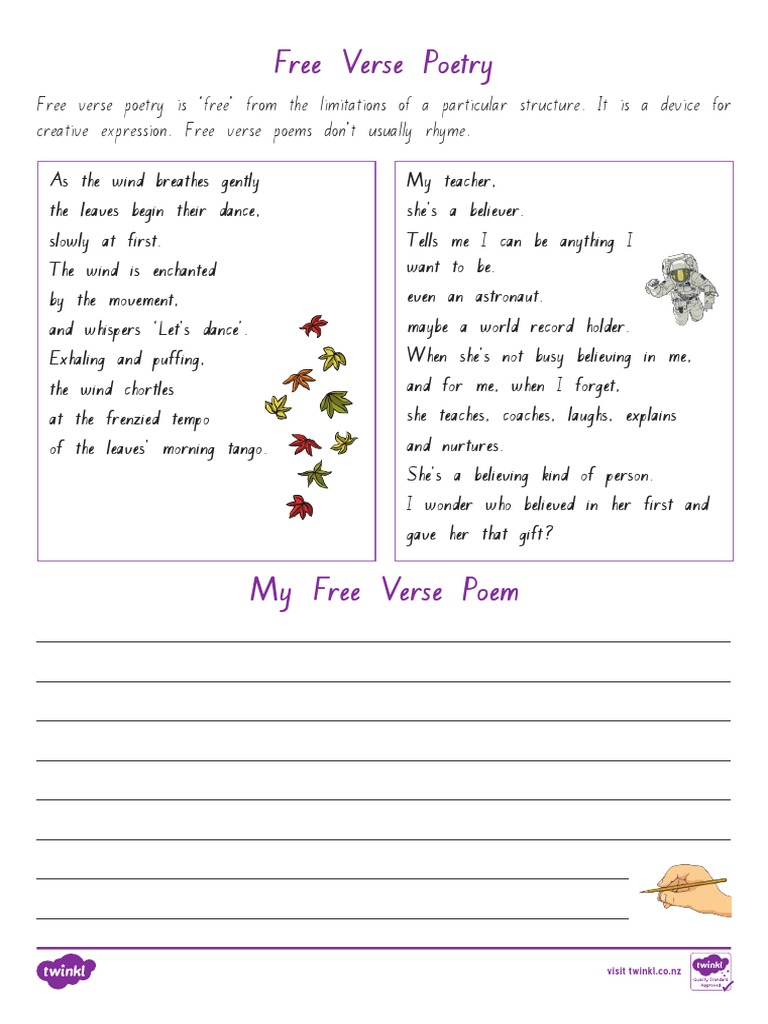 Free Verse Poetry
Free verse poetry is 'free' from the limitations of a particular structure. It is a device for
creative expression. Free verse poems don't usually rhyme.
As the wind breathes gently
the leaves begin their dance,
slowly at first.
The wind is enchanted
by the movement,
and whispers 'Let's dance'.
Exhaling and puffing,
the wind chortles
at the frenzied tempo
of the leaves' morning tango.
My teacher,
she's a believer.
Tells me I can be anything I
want to be.
even an astronaut.
maybe a world record holder.
When she's not busy believing in me,
and for me, when I forget,
she teaches, coaches, laughs, explains
and nurtures.
She's a believing kind of person.
I wonder who believed in her first and
gave her that gift?
My Free Verse Poem
twinkl
visit twinkl.co.nz
twinkl
Quality Standard
Approved